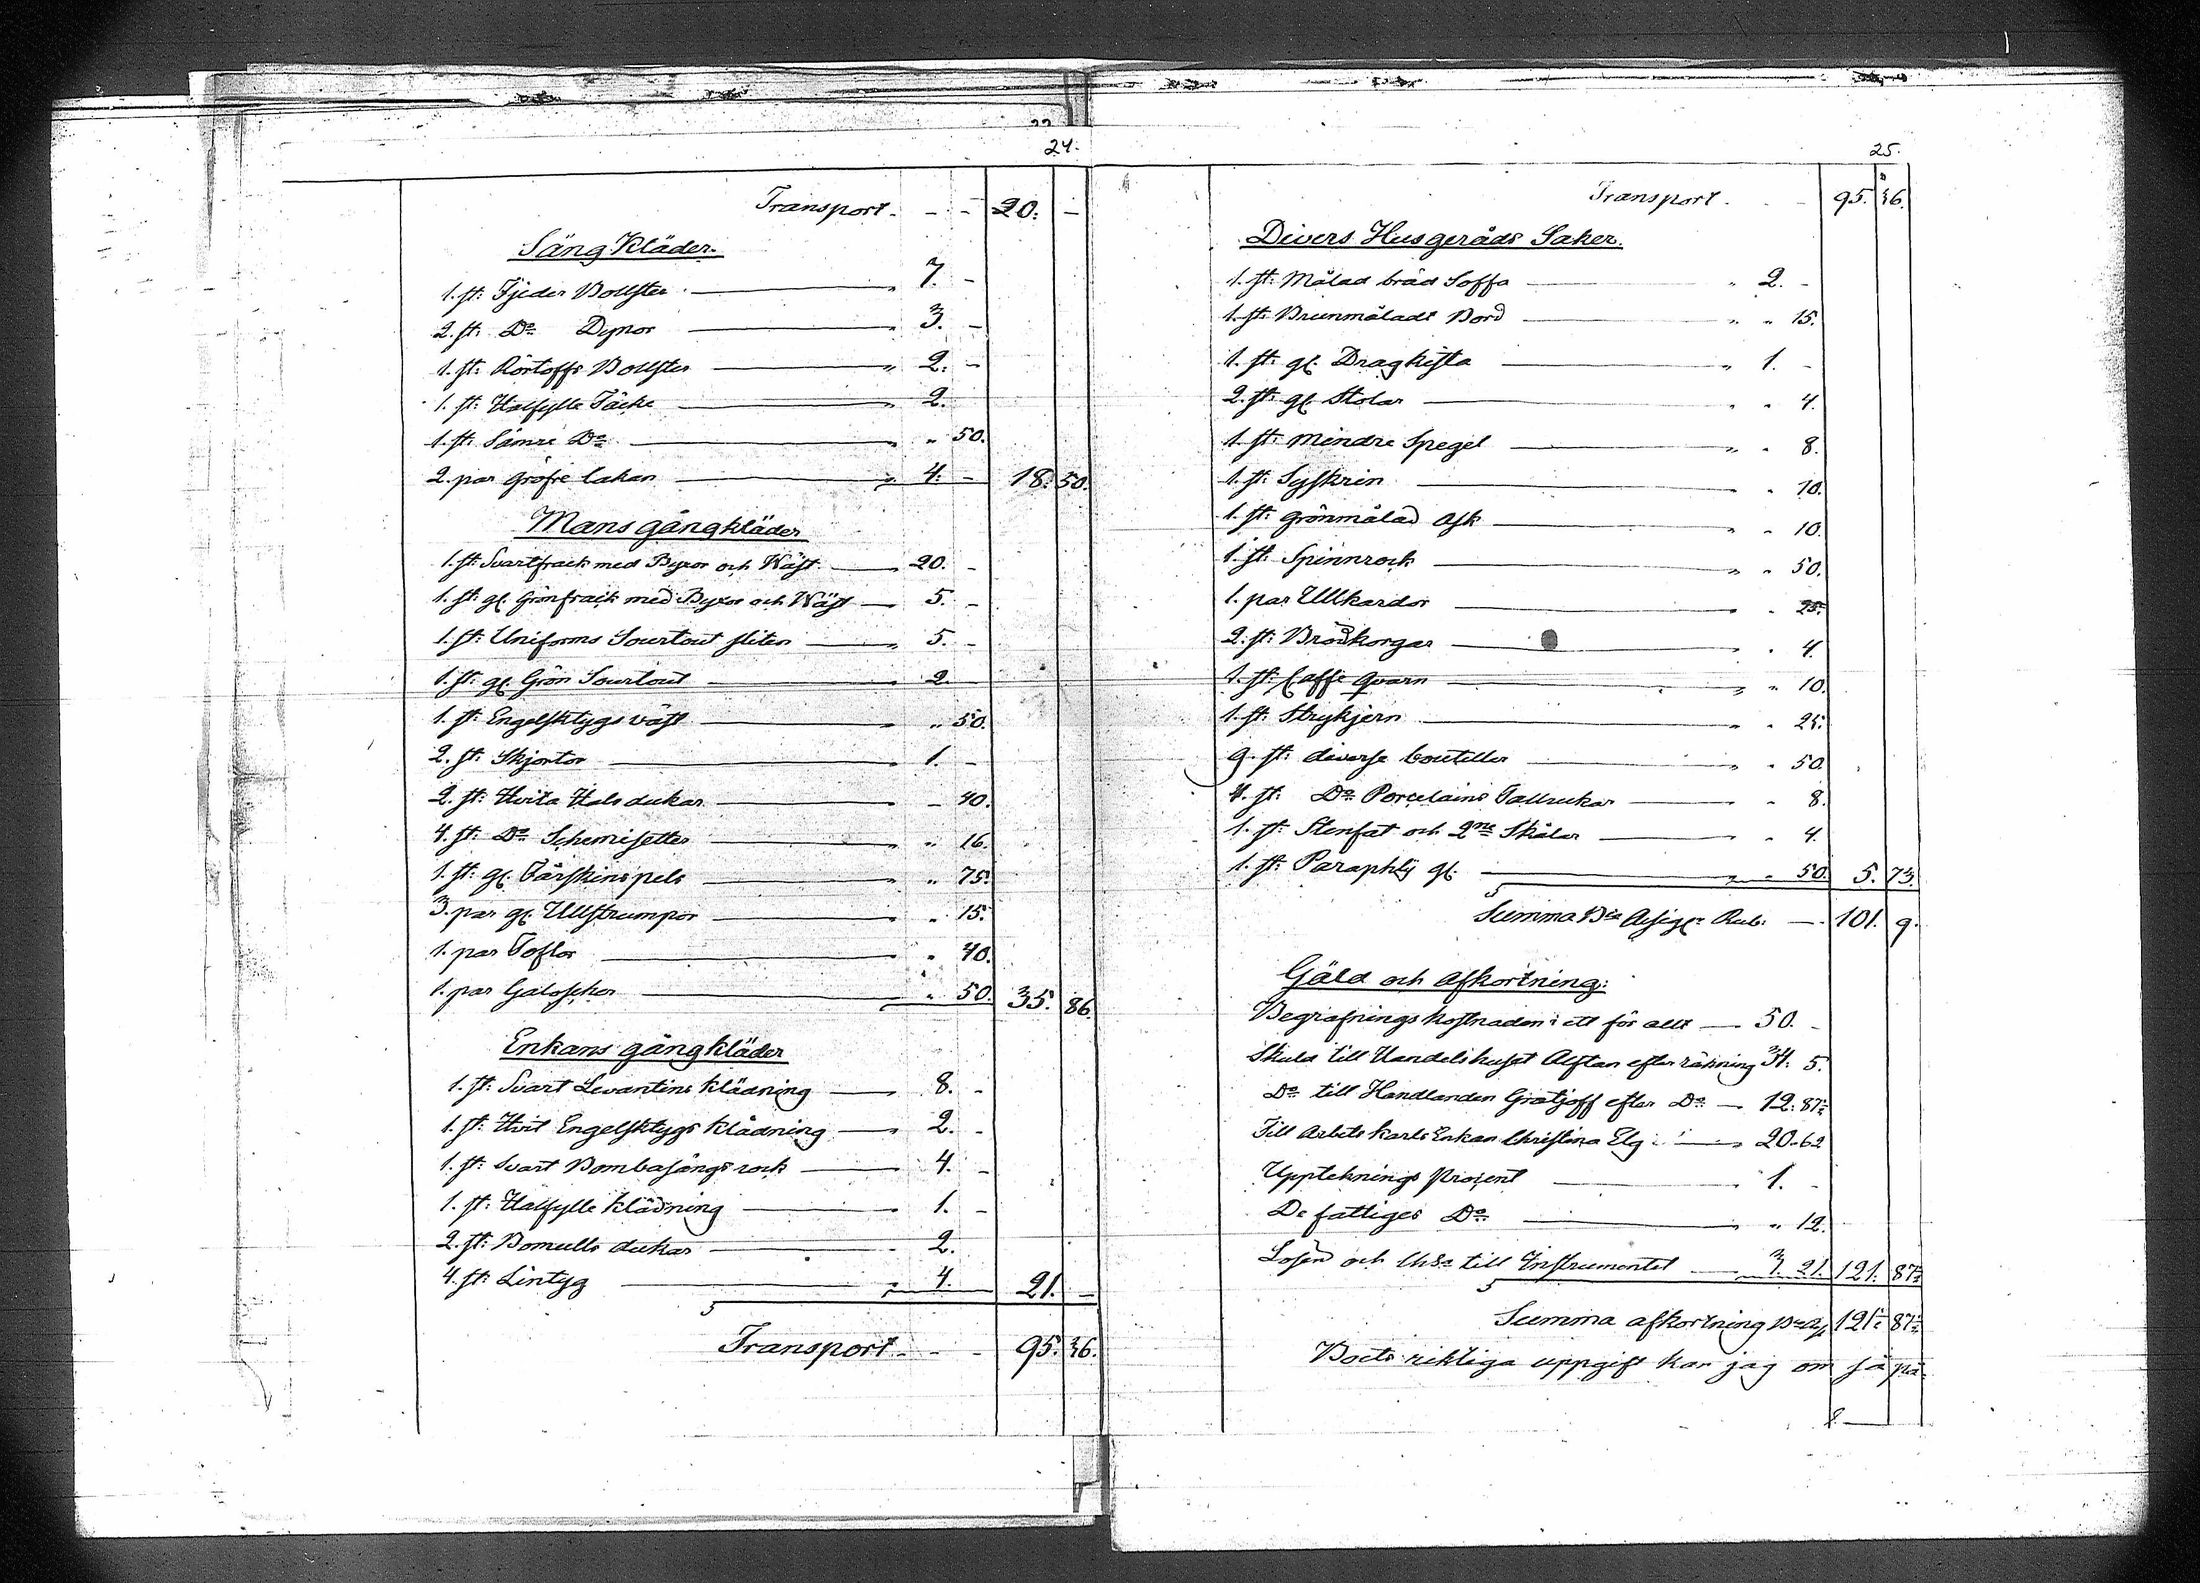 24.
Transport - - - 20. -
Säng Kläder.
1. st: Fjeder Bollster " 7. -
2. st: Do Dynor " 3. -
1. st: Rörtoffs Bollster " 2. -
1. st: Halfylle Täcke " 2.
1. st: Sämre Do " " 50.
2. par gröfre lakan " 4. - 18. 50.
Mans gångkläder
1. st: Svartfrack med Byxor och Wäst " 20. -
1. st: gl. Grönfrack med Byxor och Wäst " 5. -
1. st: Uniforms Sourtout sliten " 5. -
1. st: gl. Grön Sourtout " 2
1. st: Engelsktygs väst " " 50.
2. st: Skjortor " 1. -
2. st: Hvita Halsdukar " - 40.
4. st: Do Schemisetter " " 16.
1. st: gl. Fårskinspels " " 75.
3. par gl. Ullstrumpor " " 15.
1. par Toflor " " 40.
1. par Galoscher " " 50. 35. 86.
Enkans gångkläder
1. st: Svart Levantins klädning " 8. -
1. st: Hvit Engelsktygs klädning " 2. -
1. st: Svart Bombasångs rock " 4. -
1. st: Halfylle klädning " 1. -
2. st: Bomulls dukar " 2.
4. st: Lintyg " 4. 21. -
Transport - - - 95. 36.
25.
Transport - - - 95. 36.
Divers Husgeråds Saker.
1. st: Målad bräd Soffa " 2. -
1. st: Brunmåladt Bord " " 15.
1. st: gl. Dragkista " 1. -
2. st: gl. Stolar " " 4.
1. st: mindre Spegel " " 8.
1. st: Syskrin " " 10.
1. st: grönmålad ask " " 10.
1. st: Spinnrock " " 50.
1. par Ullkardor " 25.
2. st: Brödkorgar " " 4.
1. st: Caffe qvarn " " 10.
1. st: Strykjern " " 25.
9. st: diverse bouteller " " 50.
4. st: Do Porcelains Tallrickar " " 8.
1. st: Stenfat och 2ne Skålar " " 4.
1. st: Paraphly gl. " " 50. 5. 73.
Summa Bco Assig. Rub: 101. 9.
Gäld och afkortning:
Begrafnings kostnaden i ett för allt 50. -
Skuld till Handelshuset Alftan efter räkning 34. 5.
Do till Handlanden Gratjoff efter Do 12. 87½
Till Arbetskarls Enkan Christina Elg 20. 62
Uppteknings Procent " 1. -
De fattiges Do " " 12.
Lösen och Chta till Instrumentet 3. 21. 121. 87½
Summa afkortning Bco A/s 121. 87½
Boets riktiga uppgift kan jag om så på-